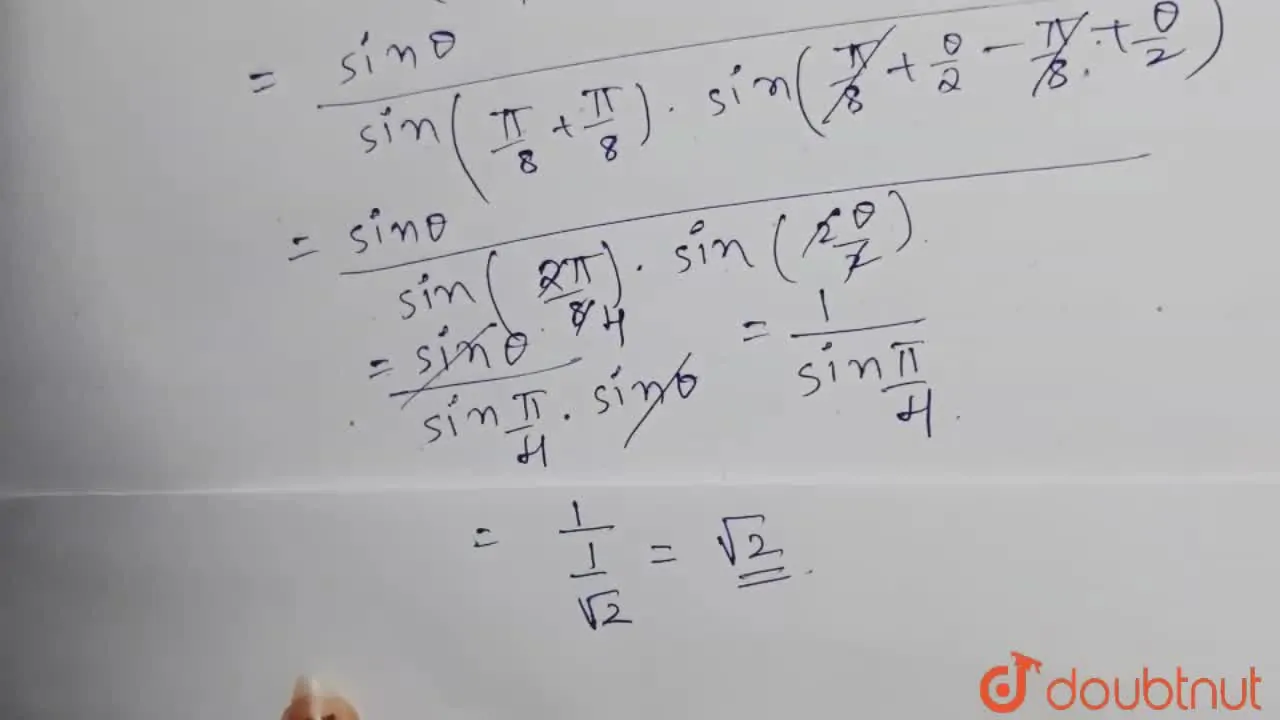 = sinθ / sin(π/8 + π/8) · sin(π/8 + θ/2 − π/8 + θ/2)
= sinθ / sin(2π/8 4) · sin(2θ/2)
= sinθ / sin π/4 · sinθ = 1 / sin π/4
= 1 / 1/√2 = √2
doubtnut